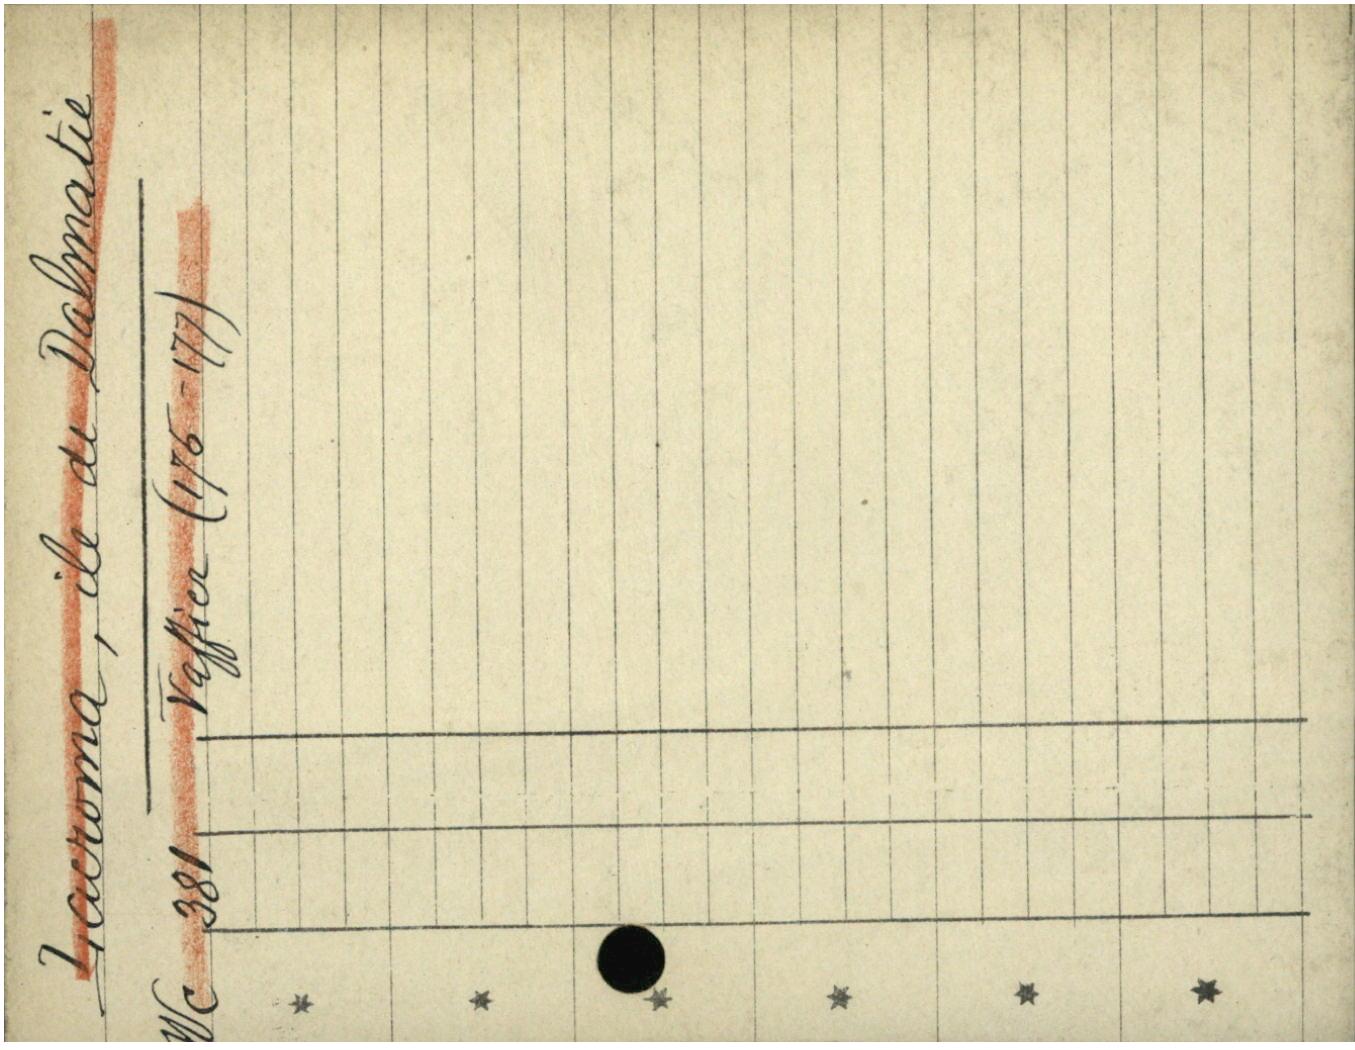 Lacroma, ile de Dalmatie
Wc 381 Vaffier (176-177)